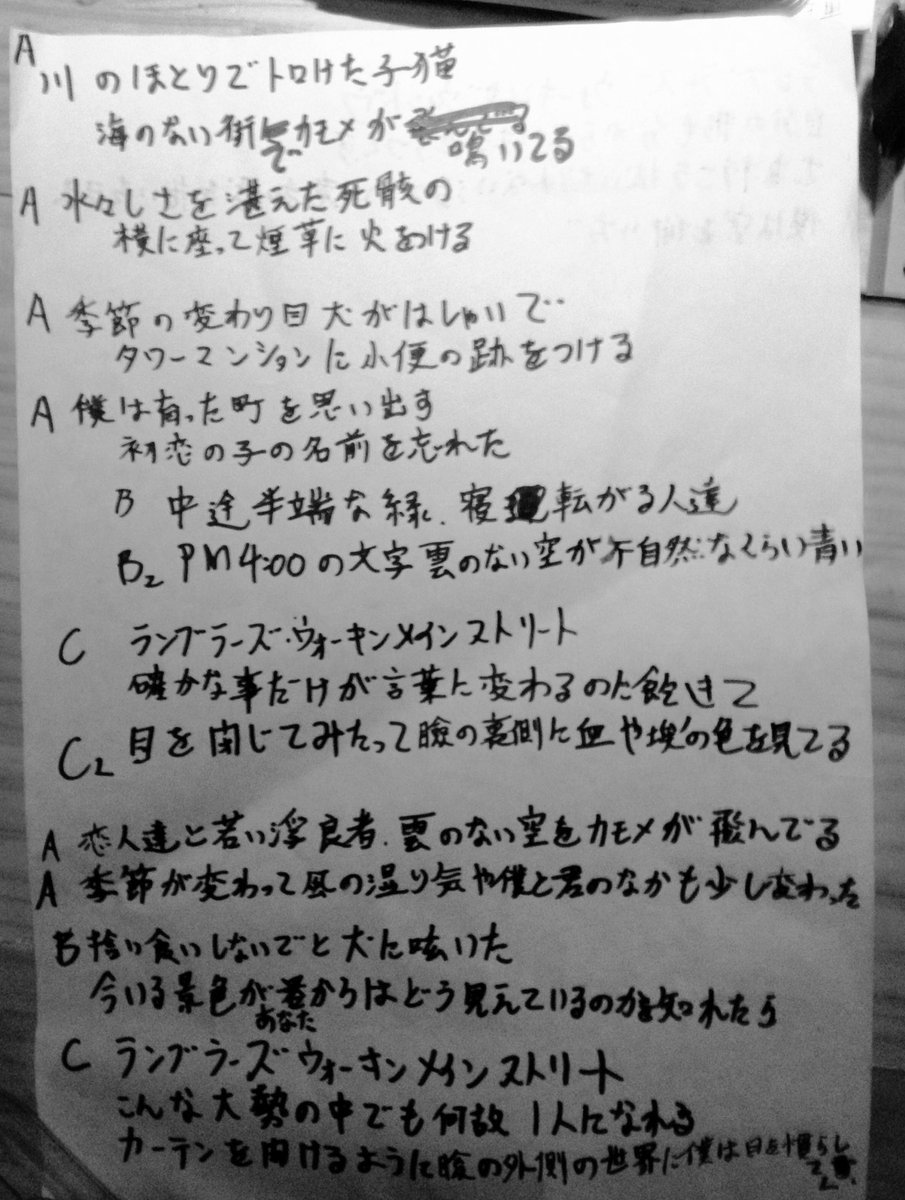 A 川のほとりでトロけた子猫
海のない街でカモメが鳴いてる
A 水々しさを湛えた死骸の
横に座って煙草に火をつける
A 季節の変わり目犬がはしゃいで
タワーマンションに小便の跡をつける
A 僕は育った町を思い出す
初恋の子の名前を忘れた
B 中途半端な緑、寝転がる人達
B2 PM4:00の文字雲のない空が不自然なくらい青い
C ランブラーズ・ウォーキンメインストリート
確かな事だけが言葉に変わるのに飽きて
C2 目を閉じてみたって瞼の裏側に血や埃の色を見てる
A 恋人達と若い浮良者、雲のない空をカモメが飛んでる
A 季節が変わって昼の湿り気や僕と君のなかも少し変わった
B 拾い食いしないでと犬に呟いた
今いる景色があなたからはどう見えているのか知れたら
C ランブラーズウォーキンメインストリート
こんな大勢の中でも何故1人になれる
カーテンを開けるように瞼の外側の世界に僕は目を慣らして